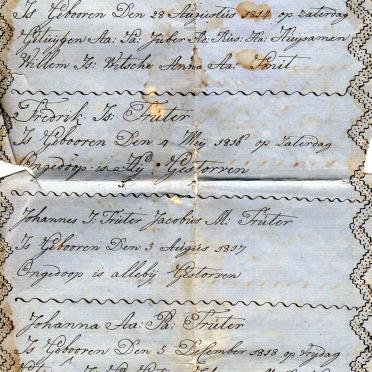 Is Gebooren Den 28 Augustus 1814 op Zaterdag
Getuygen Aa: Pa: Juber Ab: Kús: Ha: Huijsamen
Willem Is: Witsche Anna Aa: Smit
Fredrik Is: Trúter
Is Gebooren Den 4 Meij 1816 op Zaterdag
Ongedoop is Hij Gestorren
Johannes I: Trúter Jacobús M: Trúter
Is Gebooren Den 5 Augús 1817
Ongedoop is alleby Gestorren
Johanna Aa: Pa: Trúter
Is Gebooren Den 5 Desember 1818 op Vrijdag